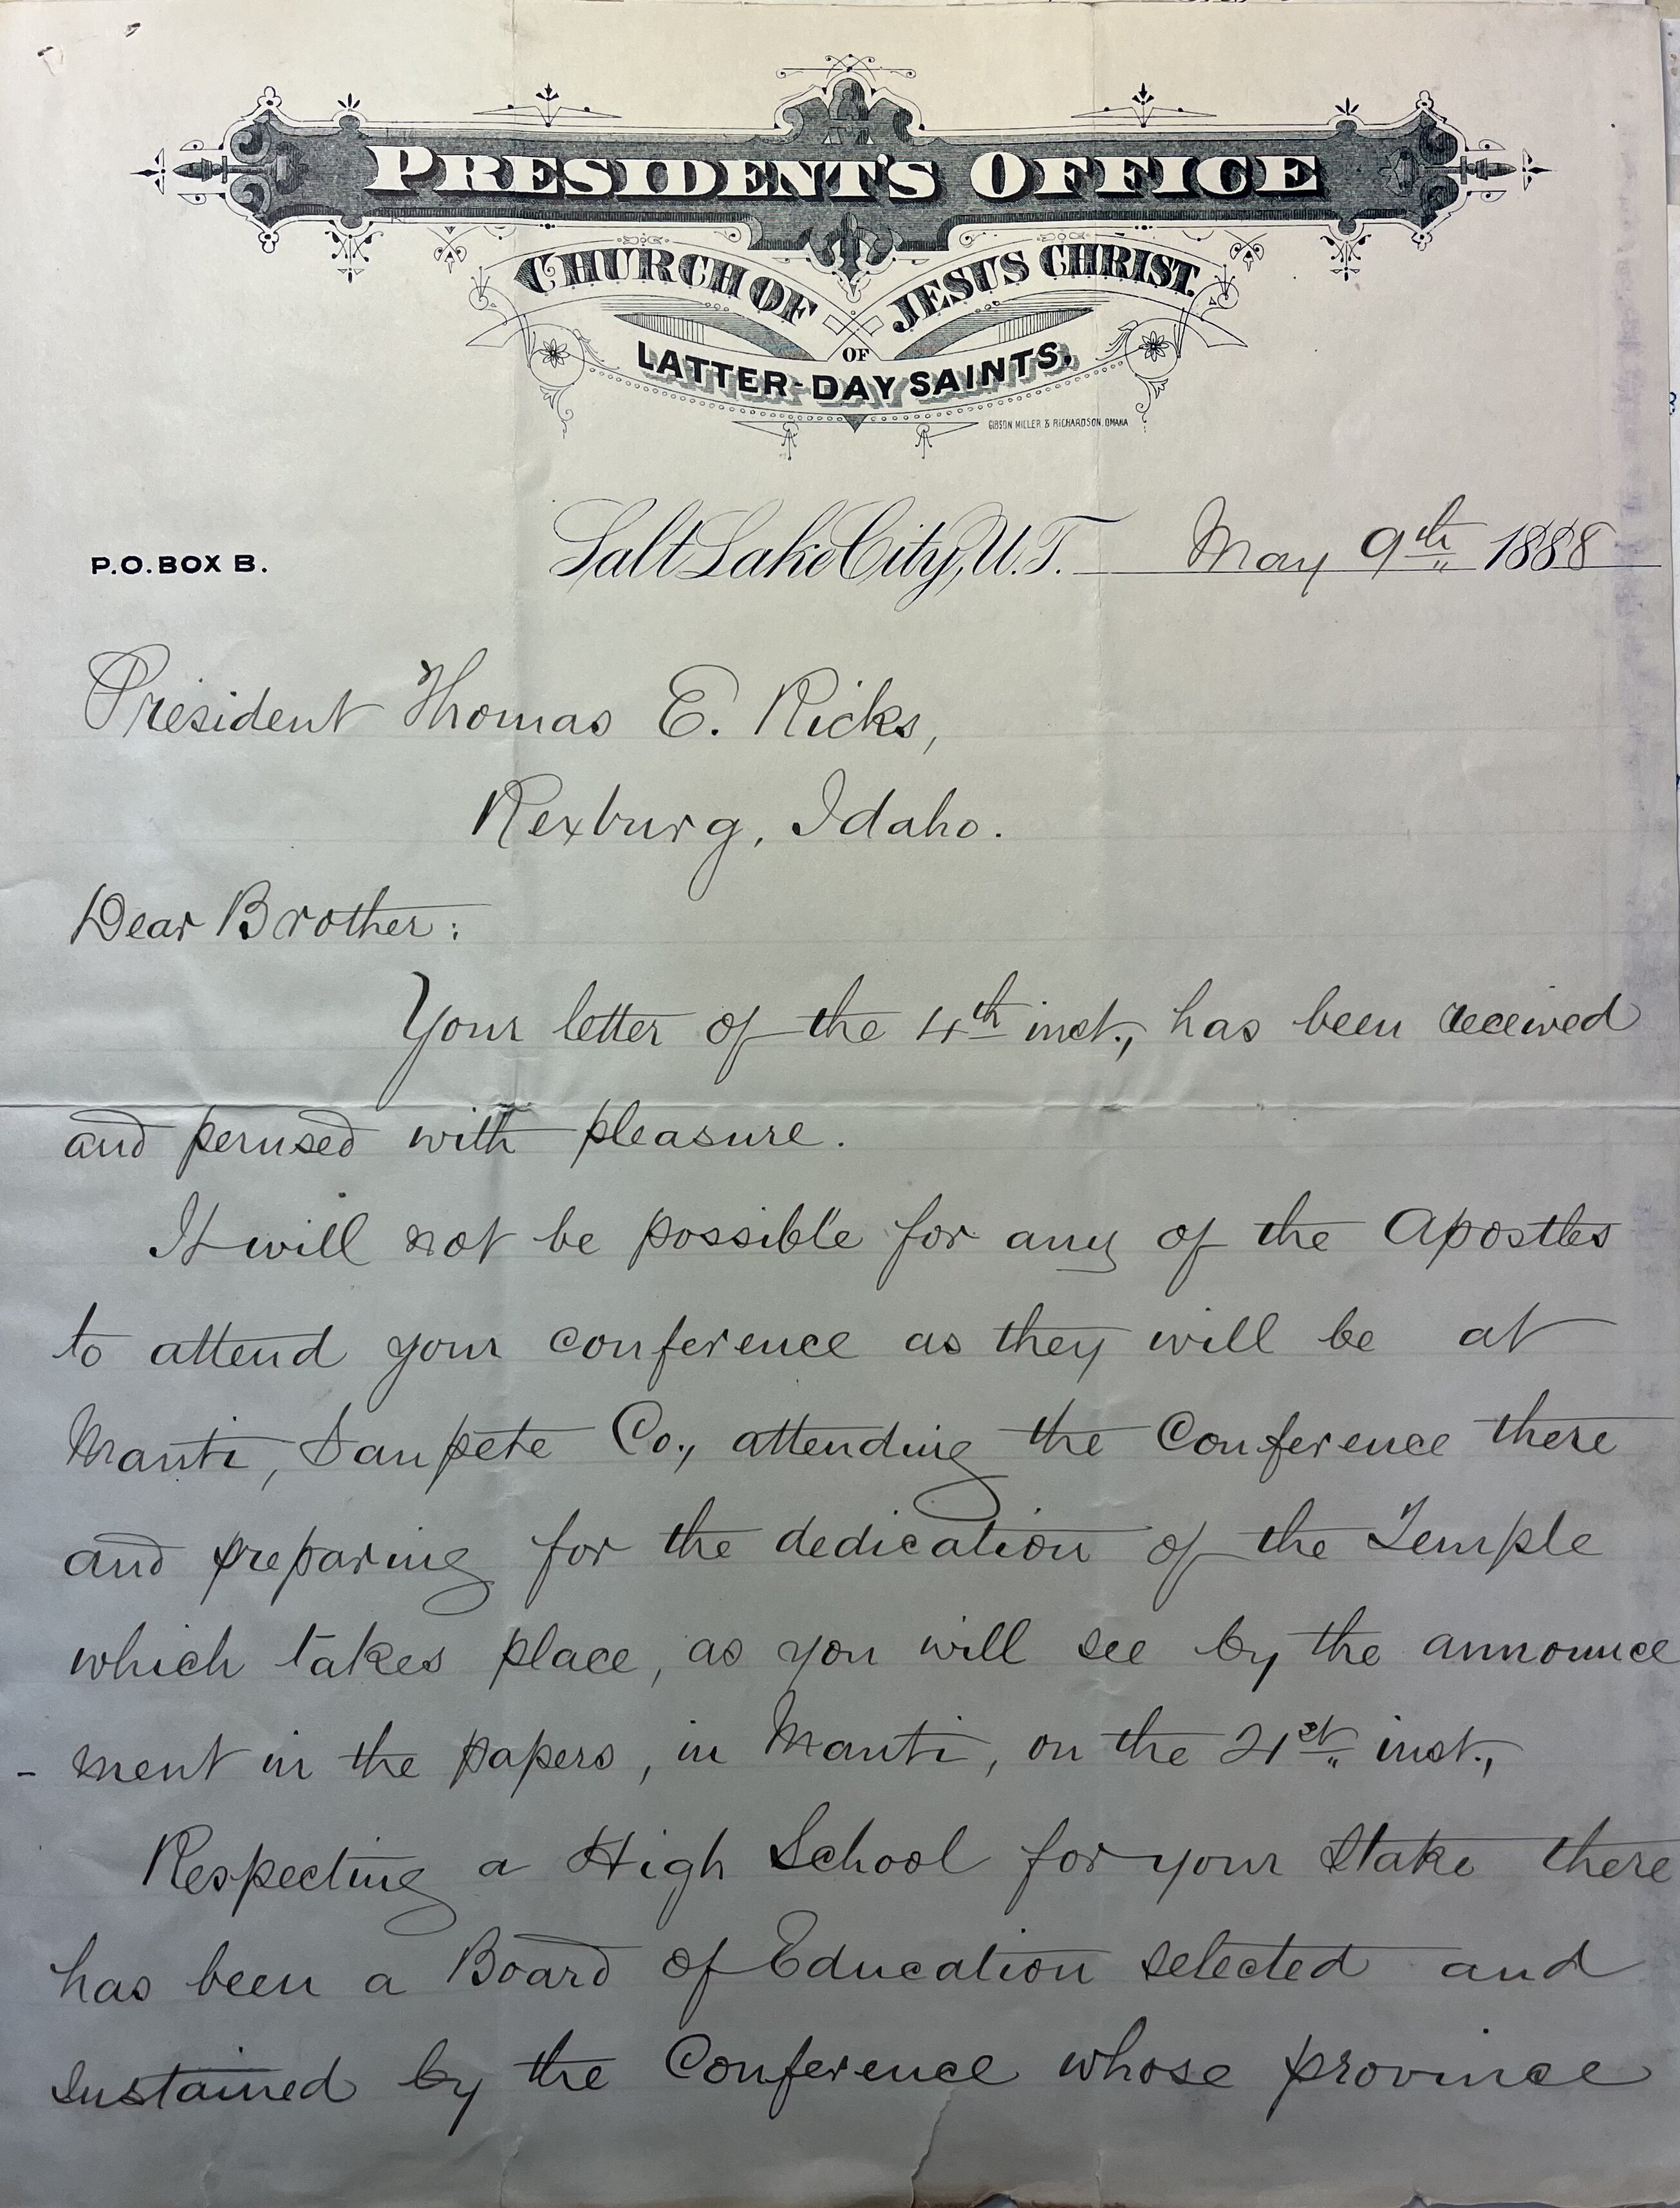 PRESIDENT'S OFFICE
CHURCH OF JESUS CHRIST
OF
LATTER-DAY SAINTS.
GIBSON MILLER & RICHARDSON, OMAHA
P.O. BOX B.
Salt Lake City, U.T. May 9th 1888
President Thomas E. Ricks,
Rexburg, Idaho.
Dear Brother:
Your letter of the 4th inst., has been received
and perused with pleasure.
It will not be possible for any of the Apostles
to attend your conference as they will be at
Manti, Sanpete Co., attending the Conference there
and preparing for the dedication of the Temple
which takes place, as you will see by the announce
- ment in the papers, in Manti, on the 21st inst.,
Respecting a High School for your Stake there
has been a Board of Education selected and
sustained by the Conference whose province